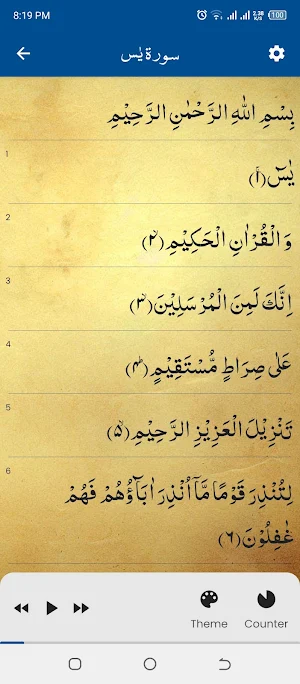 8:19 PM
2.38 K/s 100
سورة يٰس
بِسْمِ اللهِ الرَّحْمٰنِ الرَّحِيْمِ
1
يٰسٓ ﴿۱﴾
2
وَالْقُرْاٰنِ الْحَكِيْمِ ﴿۲﴾
3
اِنَّكَ لَمِنَ الْمُرْسَلِيْنَ ﴿۳﴾
4
عَلٰى صِرَاطٍ مُّسْتَقِيْمٍ ﴿۴﴾
5
تَنْزِيْلَ الْعَزِيْزِ الرَّحِيْمِ ﴿۵﴾
6
لِتُنْذِرَ قَوْمًا مَّاۤ اُنْذِرَ اٰبَآؤُهُمْ فَهُمْ
غٰفِلُوْنَ ﴿۶﴾
Theme
Counter